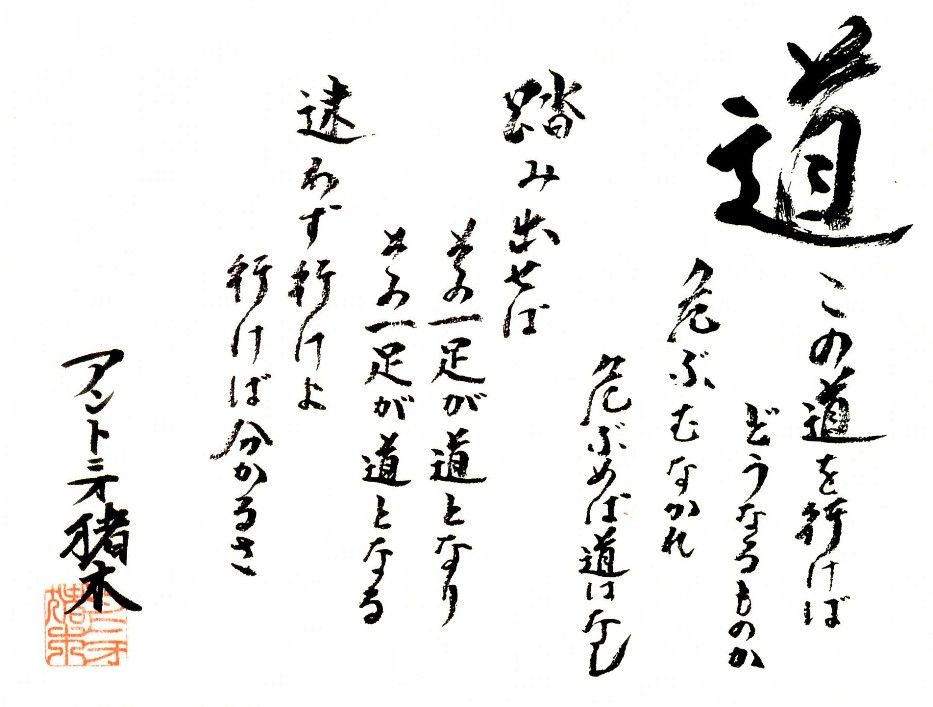 道
この道を行けば
どうなるものか
危ぶむなかれ
危ぶめば道はなし
踏み出せば
その一足が道となり
その一足が道となる
迷わず行けよ
行けば分かるさ
アントニオ猪木